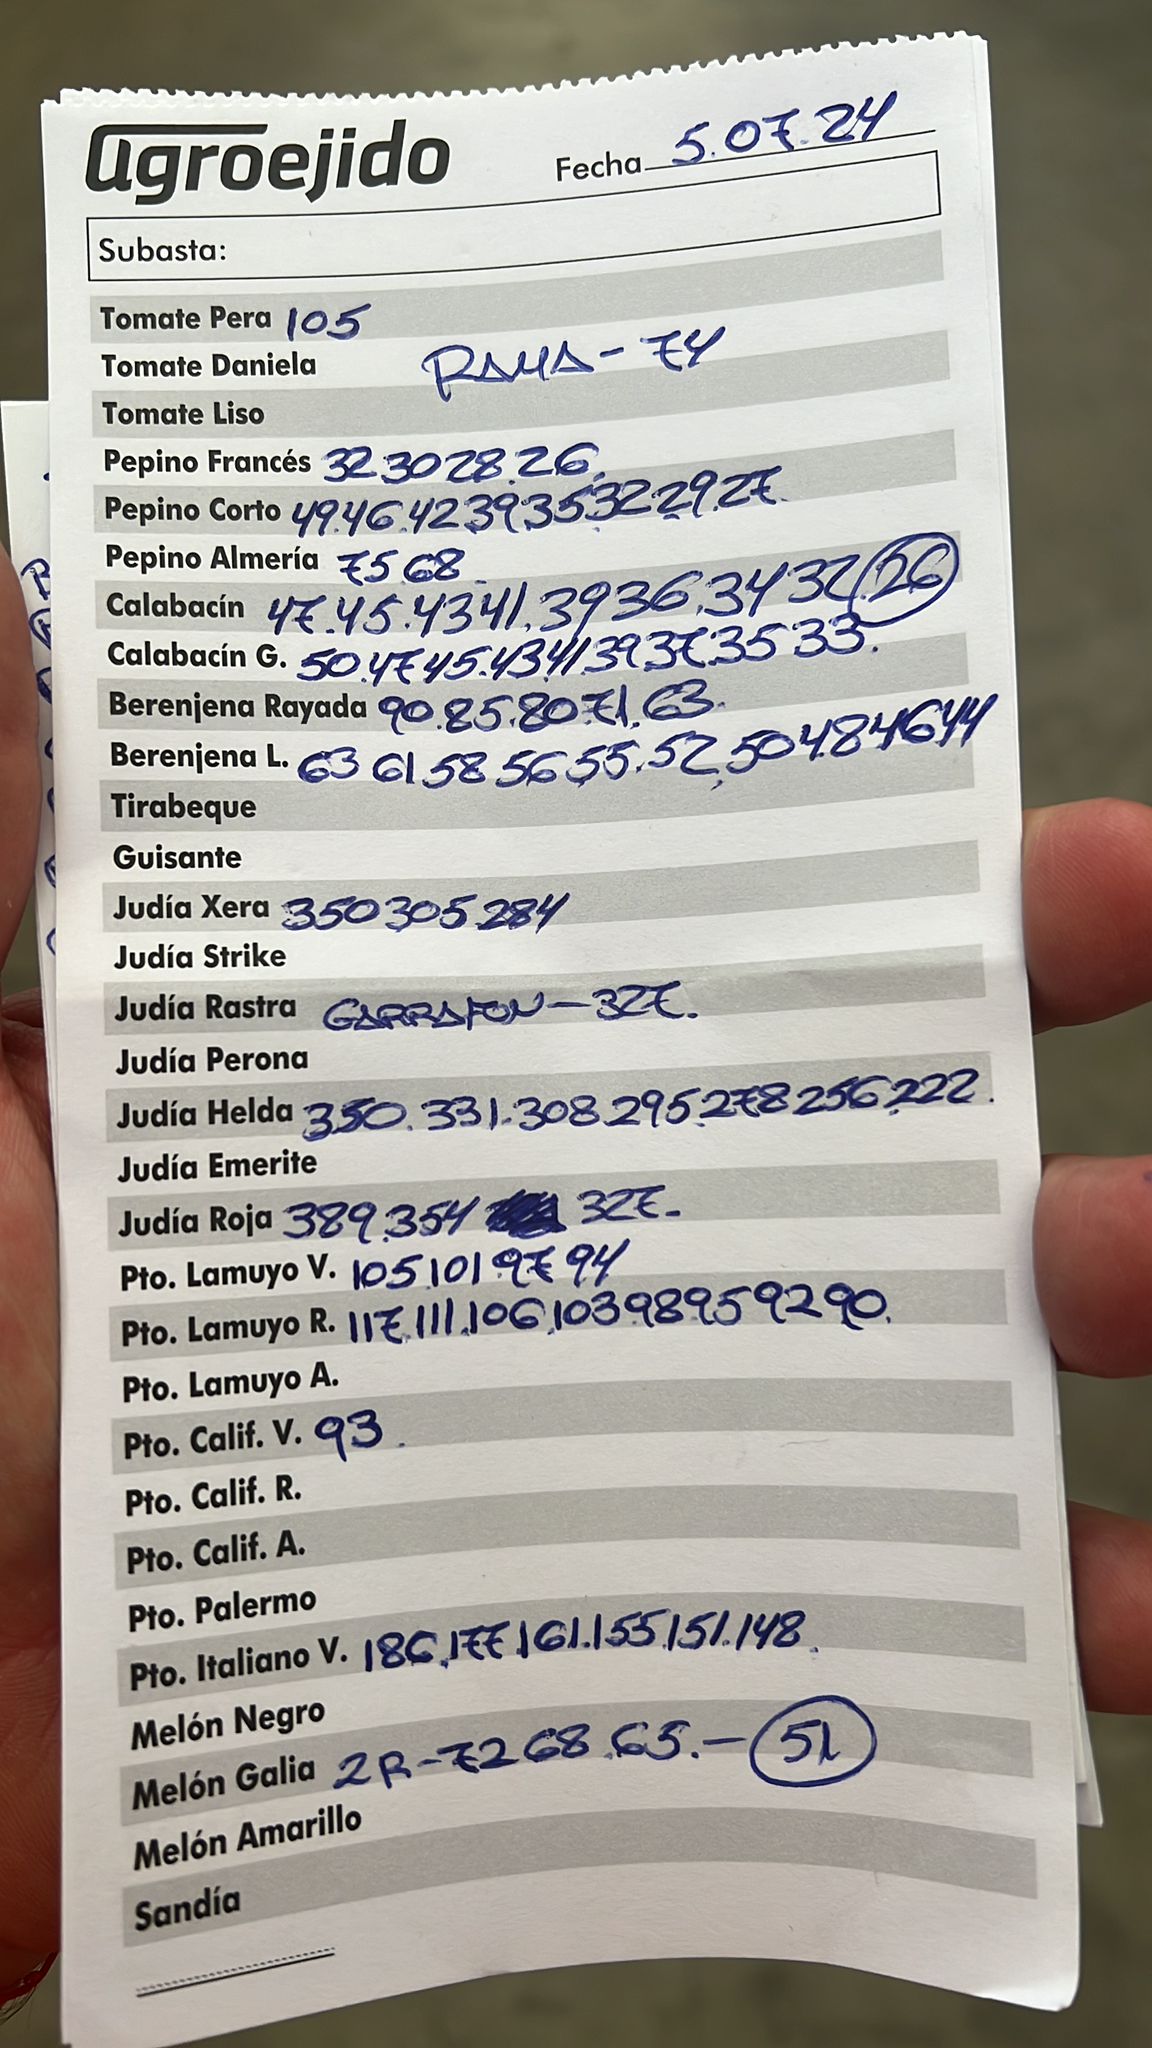 agroejido
Fecha 5.07.24
Subasta:
Tomate Pera 105
Tomate Daniela RAMA - 74
Tomate Liso
Pepino Francés 32 30 28.26.
Pepino Corto 49.46.42.39.35.32.29.27.
Pepino Almería 75.68.
Calabacín 47.45.43 41.39 36.34 32.26
Calabacín G. 50.47.45.43.41.39.37.35 33.
Berenjena Rayada 90.85.80.71.63.
Berenjena L. 63 61.58.56.55.52.50.48.46.44
Tirabeque
Guisante
Judía Xera 350.305.284
Judía Strike
Judía Rastra GARRAFON - 327.
Judía Perona
Judía Helda 350.331.308.295.278.256.222.
Judía Emerite
Judía Roja 389.354 327.
Pto. Lamuyo V. 105.101.97.94
Pto. Lamuyo R. 117.111.106.103.98.95.92.90.
Pto. Lamuyo A.
Pto. Calif. V. 93.
Pto. Calif. R.
Pto. Calif. A.
Pto. Palermo
Pto. Italiano V. 186.177.161.155.151.148.
Melón Negro
Melón Galia 2R - 72 68.65. - 51
Melón Amarillo
Sandía